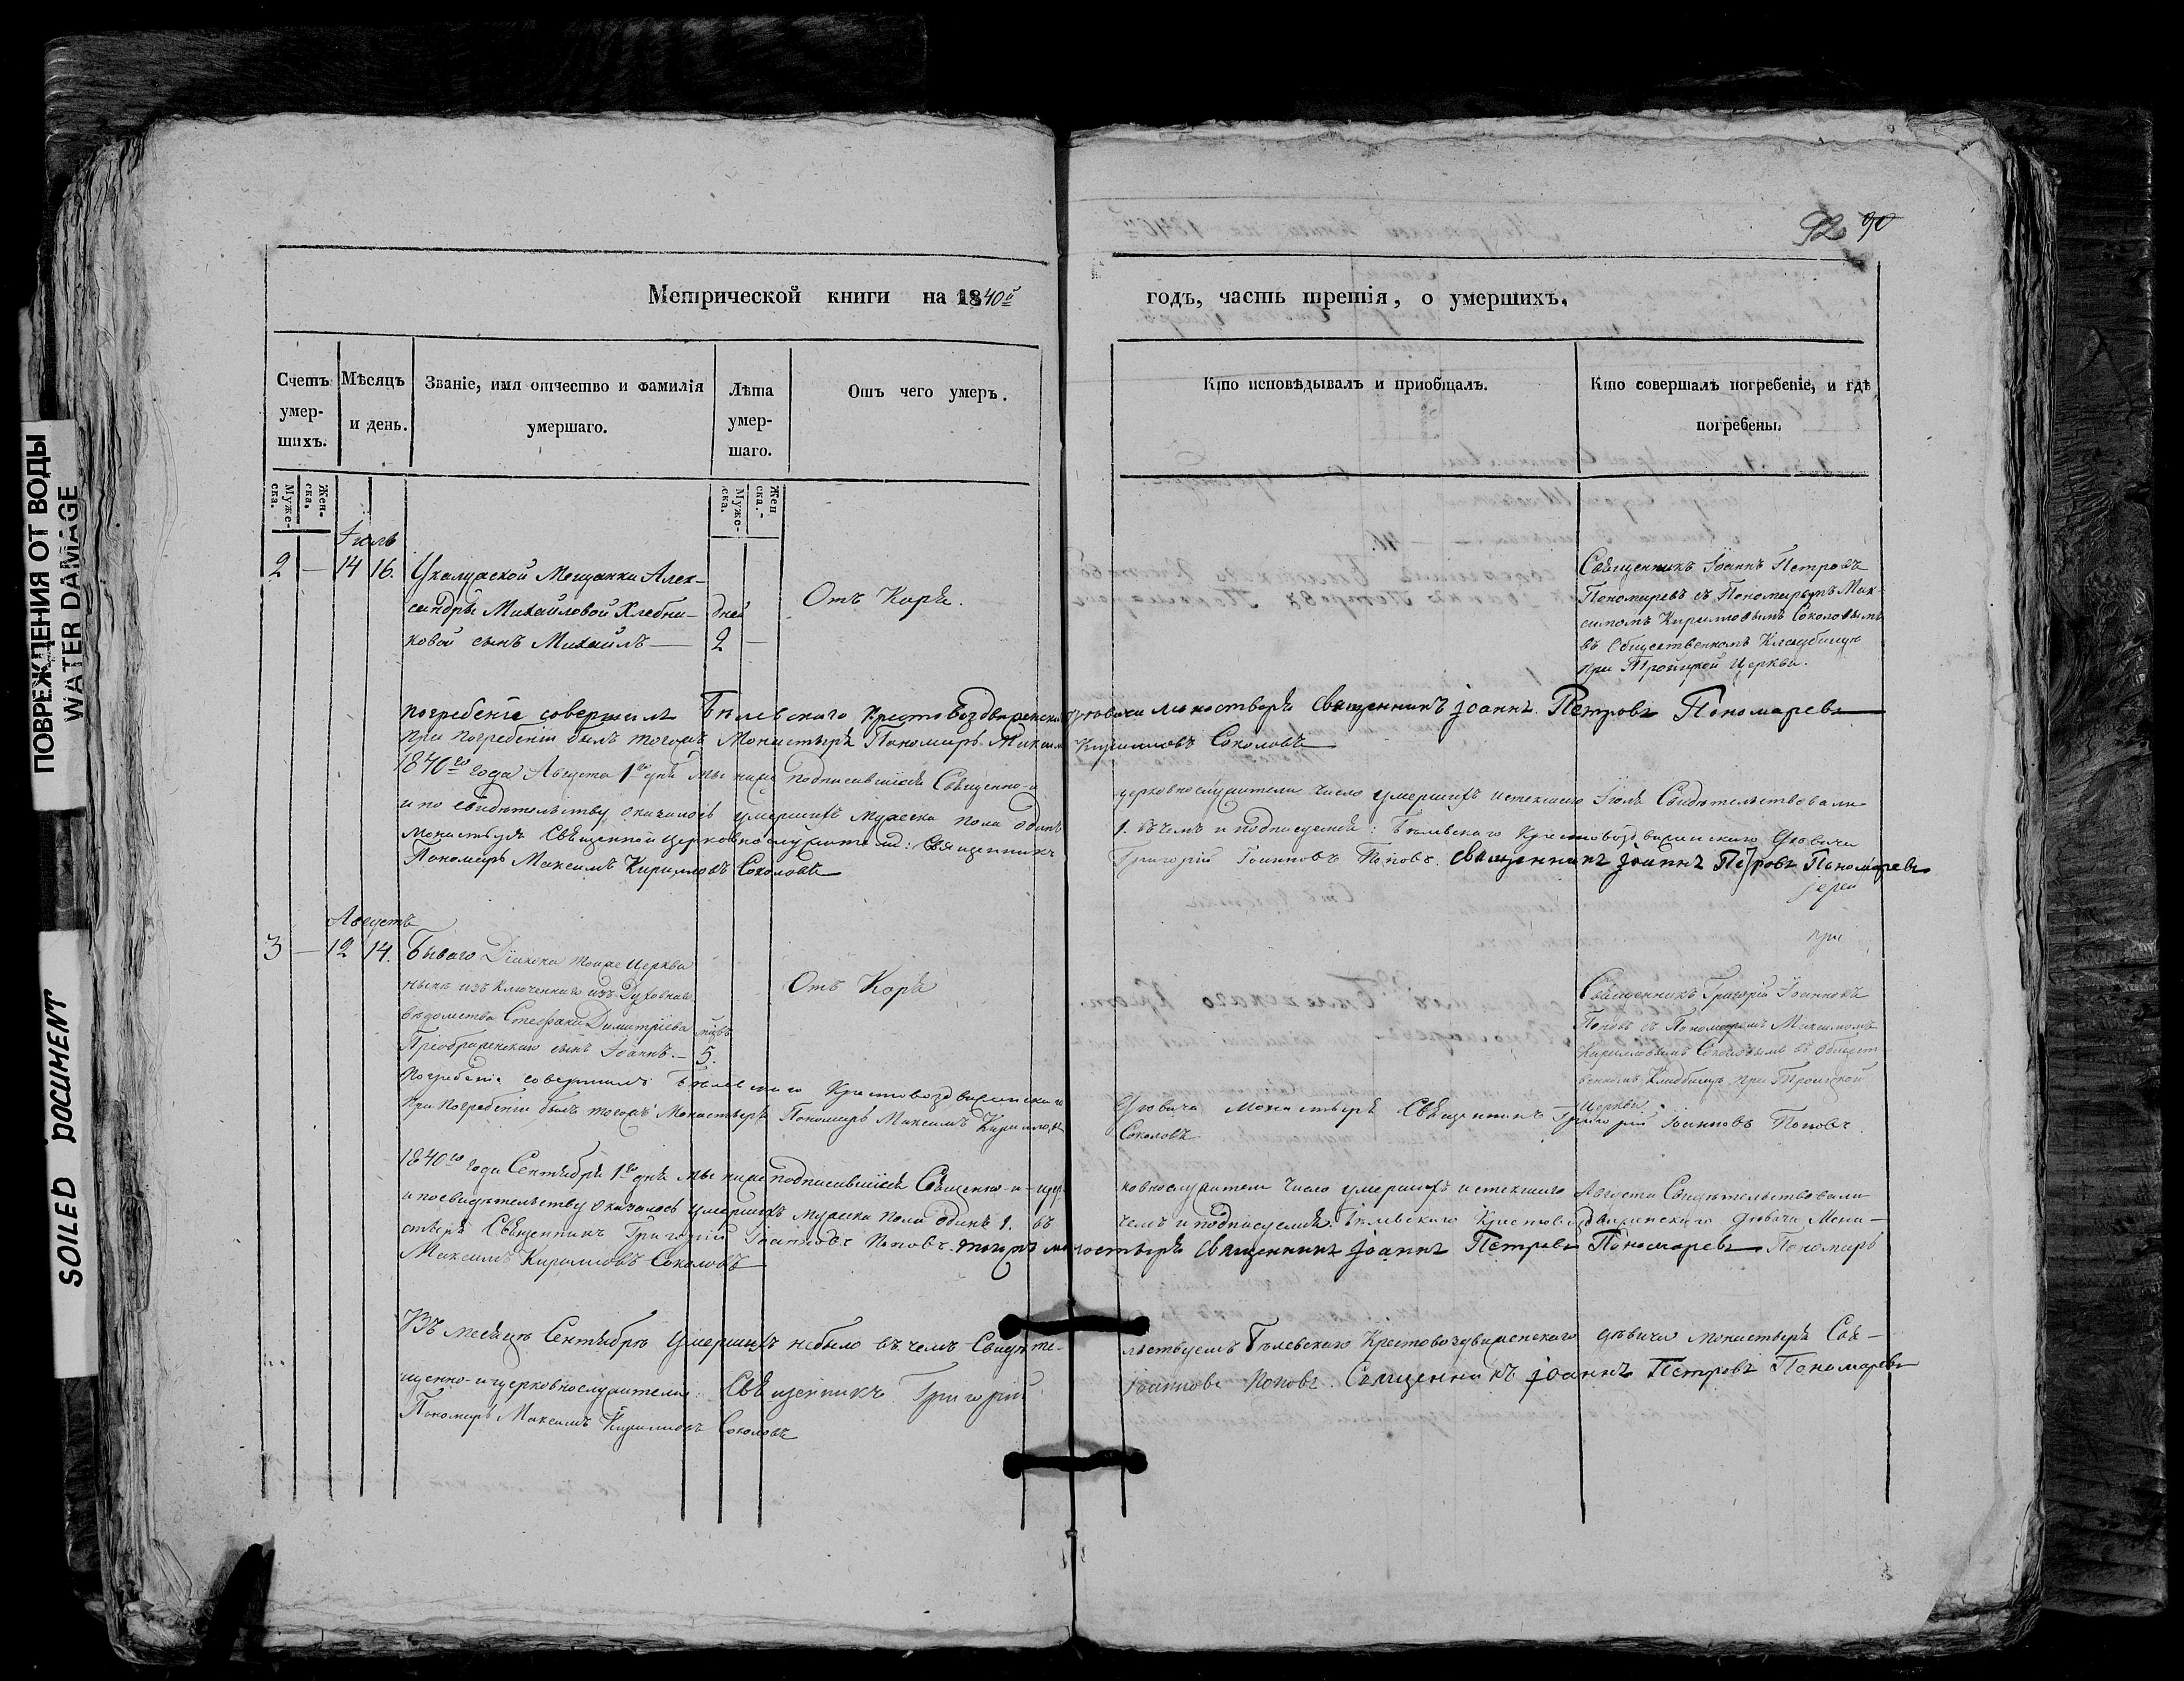 92 90
Метрической книги на 1840й годъ, часть третія, о умершихъ.
Счетъ умер-шихъ.
Мѣсяцъ и день.
Званіе, имя отчество и фамилія умершаго.
Лѣта умер-шаго.
Отъ чего умеръ.
Кто исповѣдывалъ и пріобщалъ.
Кто совершалъ погребеніе, и гдѣ погребены.
Муже-ска.
Жен-ска.
Муже-ска.
Жен ска.
Іюль
2 — 14 16.
Мещанки Алек-
сандры Михайловой Хлебни-
ковой сынъ Михаилъ —
дней
2 —
Отъ Коря.
Священникъ Іоаннъ Петровъ
Пономаревъ съ Пономаремъ Мак-
симомъ Кирилловымъ Соколовымъ
въ Общественномъ Кладбищѣ
при Троицкой Церкви.
погребеніе совершилъ Бѣлевскаго Крестовоздвиженскаго дѣвича монастыря священникъ іоаннъ Петровъ Пономаревъ
При погребеніи былъ тогожъ Монастыря Пономарь Максимъ Кирилловъ Соколовъ
1840го года Августа 1го дня мы ниже подписавшіеся Священно-и церковнослужители число умершихъ истекшаго Іюля Свидѣтельствовали
и по свидѣтельству оказалось умершихъ мужеска пола одинъ 1. въ чемъ и подписуемся: Бѣлевскаго Крестовоздвиженскаго Дѣвича
Монастыря Священно и церковнослужители: Священникъ Григорій Іоанновъ Поповъ. священникъ іоаннъ Петровъ Пономаревъ
Пономарь Максимъ Кирилловъ Соколовъ
іерей
при
Августъ
3 — 12 14.
Бываго Діакона тояже Церкви
нынѣ изъключеннаго изъ Духовнаго
вѣдомства Стефана Димитріева
Преображенскаго сынъ Іоаннъ. —
5.
Отъ Коря
Священникъ Григорій Іоанновъ
Поповъ съ Пономаремъ Максимомъ
Кирилловымъ Соколовымъ въ Общест
венномъ Кладбищѣ при Троицкой
Церкви.
Погребеніе совершилъ Бѣлевскаго Крестовоздвиженскаго Дѣвича Монастыря Священникъ Григорій Іоанновъ Поповъ.
При погребеніи былъ тогожъ Монастыря Пономарь Максимъ Кирилловъ Соколовъ
1840го года Сентября 1го дня мы ниже подписавшіеся Священно-и-цер-ковнослужители число умершихъ истекшаго Августа Свидѣтельствовали
и по свидѣтельству оказалось умершихъ мужеска пола одинъ 1. въ чемъ и подписуемся. Бѣлевскаго Крестовоздвиженскаго дѣвича Мона-
стыря Священникъ Григорій Іоанновъ Поповъ. тогожъ монастыря священникъ іоаннъ Петровъ Пономаревъ Пономарь
Максимъ Кирилловъ Соколовъ
Въ месяцѣ Сентябрѣ Умершихъ небыло въ чемъ Свидѣте-льствуемъ Бѣлевскаго Крестовоздвиженскаго дѣвича монастыря Свя-
щенно-и церковнослужители: Священникъ Григорій Іоанновъ Поповъ. Священникъ іоаннъ Петровъ Пономаревъ
Пономарь Максимъ Кирилловъ Соколовъ
ПОВРЕЖДЕНИЯ ОТ ВОДЫ
WATER DAMAGE
SOILED DOCUMENT